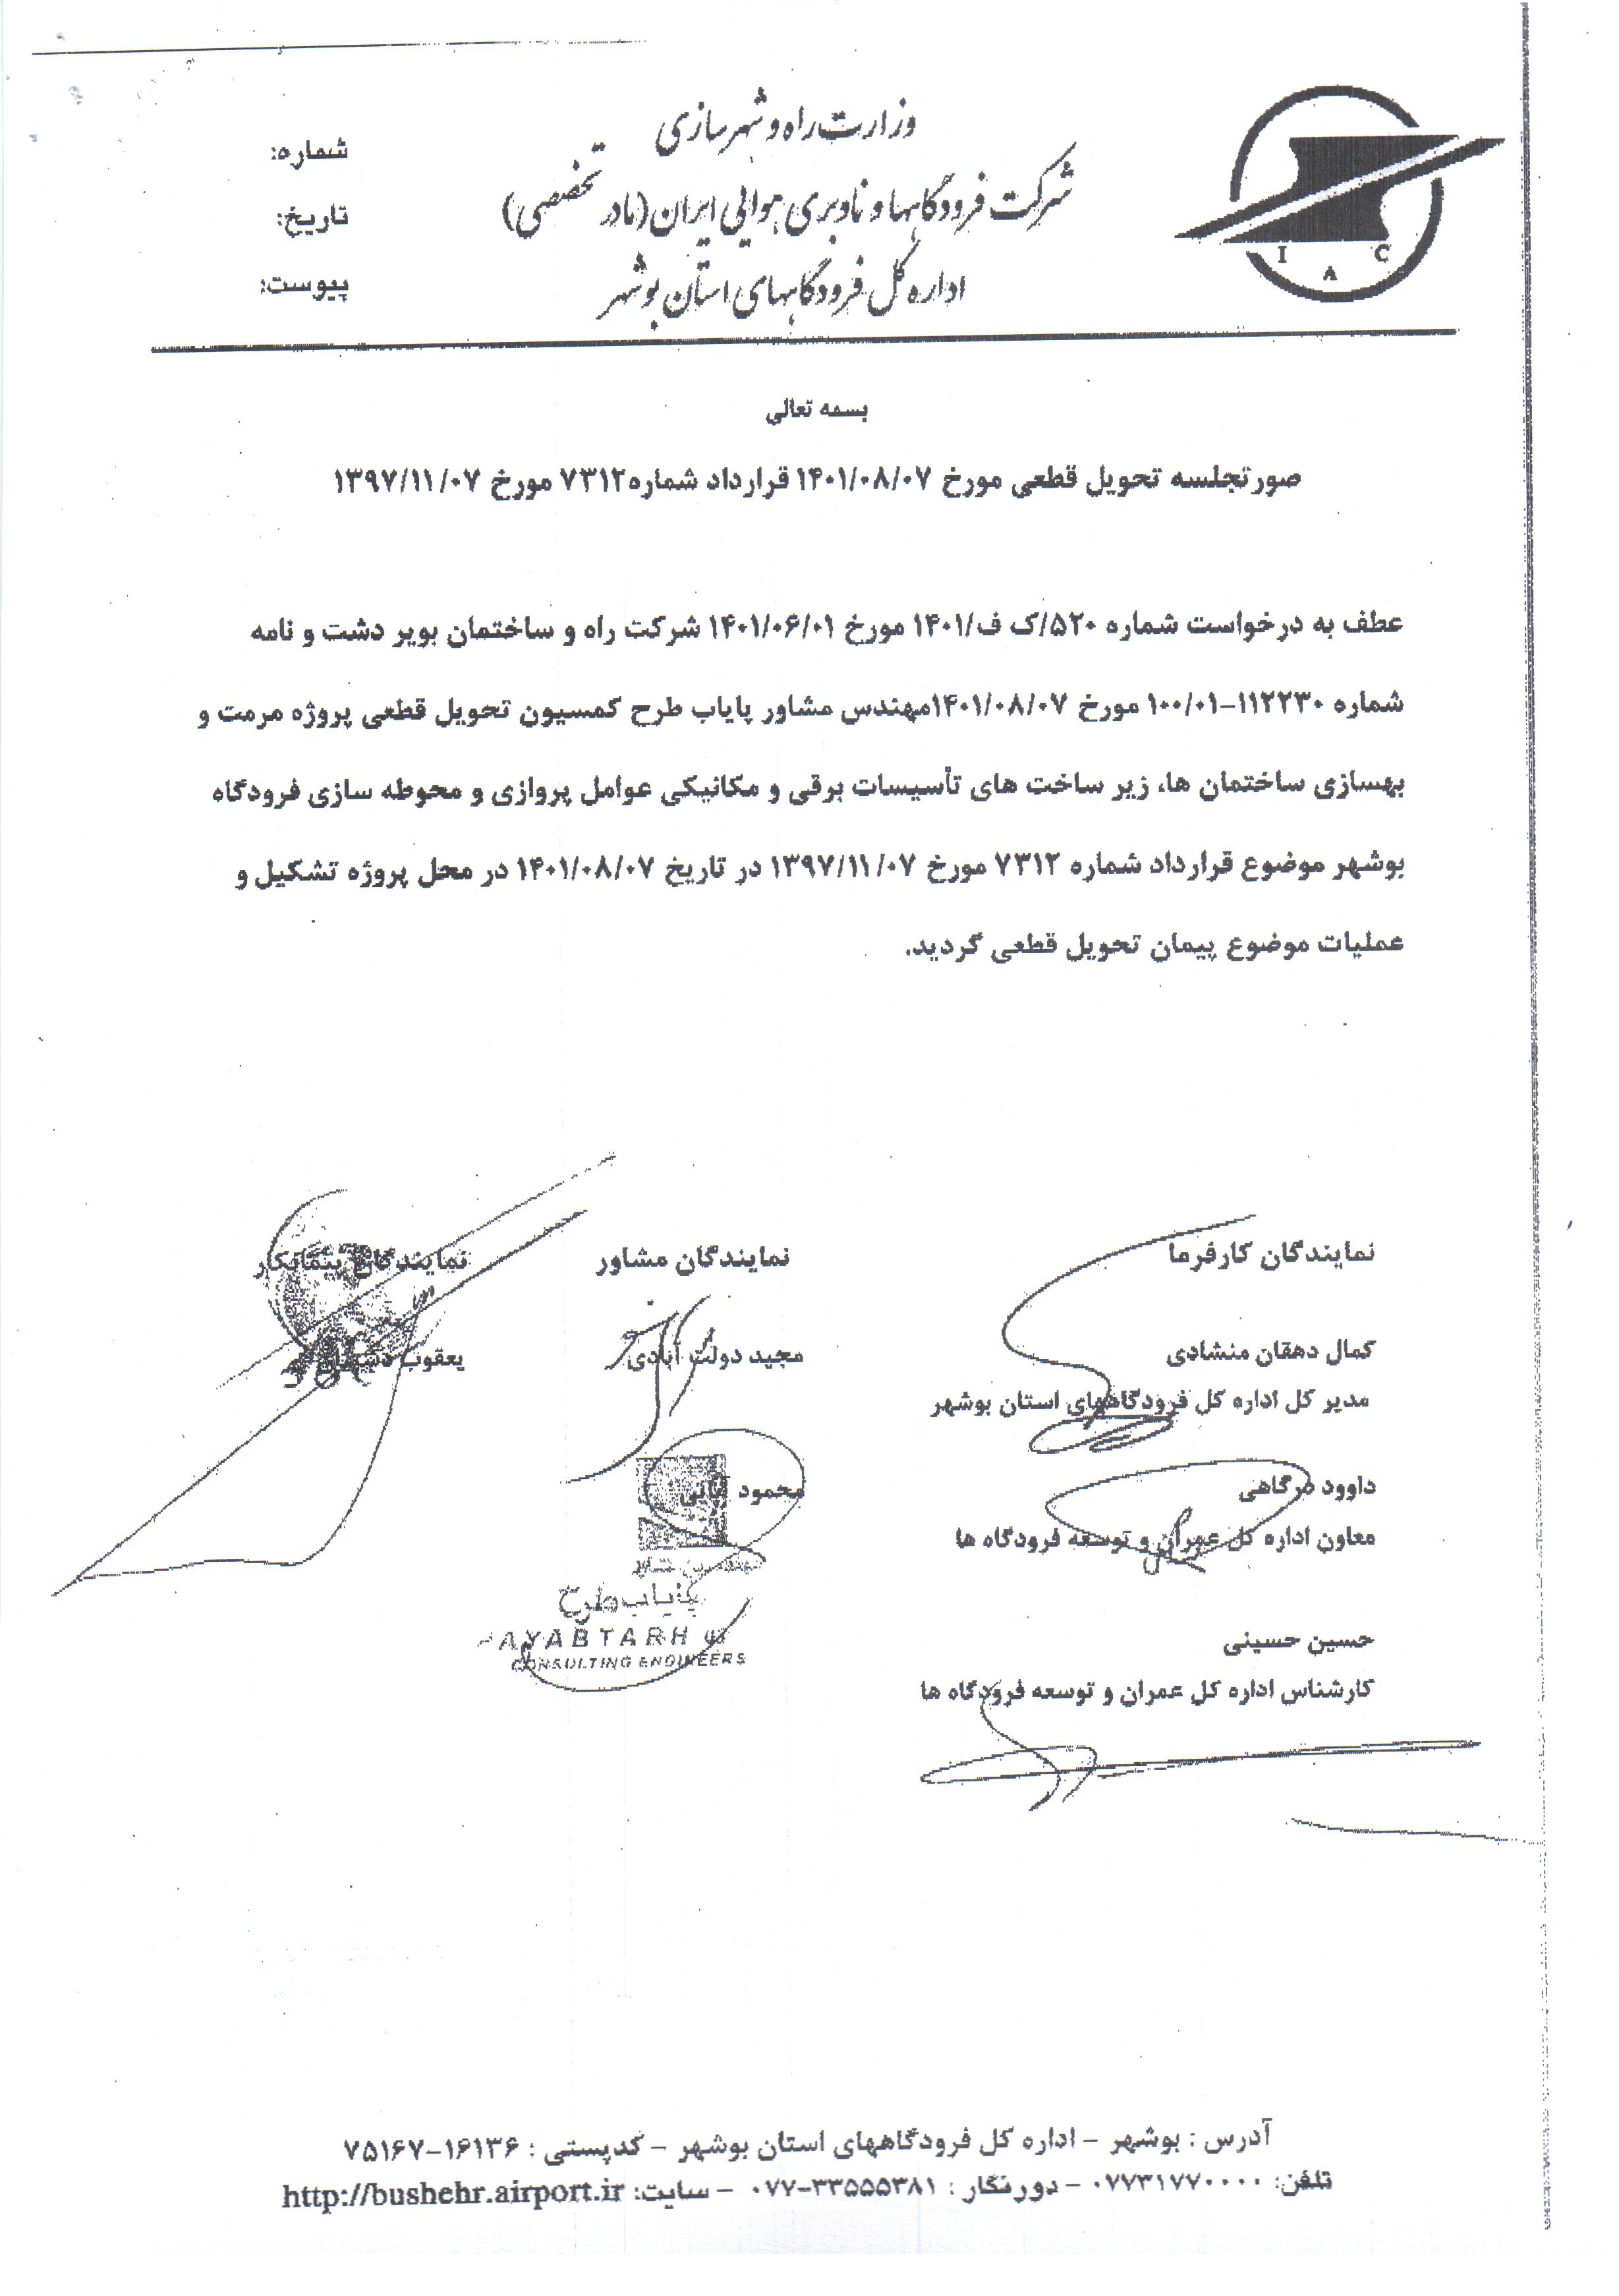 وزارت راه و شهرسازی
شرکت فرودگاهها و ناوبری هوایی ایران (مادر تخصصی)
اداره کل فرودگاههای استان بوشهر
شماره:
تاریخ:
پیوست:
I A C
بسمه تعالی
صورتجلسه تحویل قطعی مورخ ۱۴۰۱/۰۸/۰۷ قرارداد شماره۷۳۱۲ مورخ ۱۳۹۷/۱۱/۰۷
عطف به درخواست شماره ۵۲۰/ک ف/۱۴۰۱ مورخ ۱۴۰۱/۰۶/۰۱ شرکت راه و ساختمان بویر دشت و نامه
شماره ۱۱۲۲۳۰-۱۰۰/۰۱ مورخ ۱۴۰۱/۰۸/۰۷مهندس مشاور پایاب طرح کمسیون تحویل قطعی پروژه مرمت و
بهسازی ساختمان ها، زیر ساخت های تأسیسات برقی و مکانیکی عوامل پروازی و محوطه سازی فرودگاه
بوشهر موضوع قرارداد شماره ۷۳۱۲ مورخ ۱۳۹۷/۱۱/۰۷ در تاریخ ۱۴۰۱/۰۸/۰۷ در محل پروژه تشکیل و
عملیات موضوع پیمان تحویل قطعی گردید.
نمایندگان کارفرما
کمال دهقان منشادی
مدیر کل اداره کل فرودگاههای استان بوشهر
داوود درگاهی
معاون اداره کل عمران و توسعه فرودگاه ها
حسین حسینی
کارشناس اداره کل عمران و توسعه فرودگاه ها
نمایندگان مشاور
مجید دولت آبادی
محمود
مهندسین مشاور
پایاب طرح
PAYAB TARH
CONSULTING ENGINEERS
نمایندگان پیمانکار
یعقوب
آدرس : بوشهر – اداره کل فرودگاههای استان بوشهر – کدپستی : ۱۶۱۳۶-۷۵۱۶۷
تلفن: ۰۷۷۳۱۷۷۰۰۰۰ – دورنگار : ۳۳۵۵۵۳۸۱-۰۷۷ – سایت: http://bushehr.airport.ir